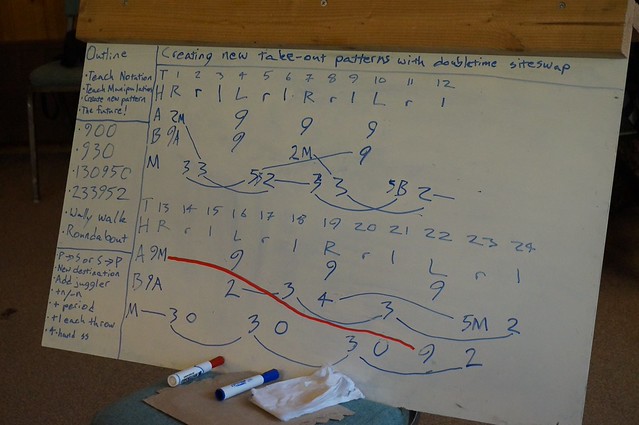 Outline
• Teach Notation
• Teach Manipulation
• Create new pattern
• The future!
• 900
• 930
• 130950
• 233952
• Wally walk
• Roundabout
P→S or S→P
• New destination
• Add juggler
• +n/-n
• + period
• +1 each throw
• 4-hand ss
Creating new take-out patterns with doubletime siteswap
T 1 2 3 4 5 6 7 8 9 10 11 12
H R r l L r l R r l L r l
A 2M 9 9 9
B 9A 9 9 9
M 3 3 5 5 2 2M 3 3 9 5B 2
T 13 14 15 16 17 18 19 20 21 22 23 24
H R r l L r l R r l L r l
A 9M 9 9 9
B 9A 2 3 4 3 5M 2
M 3 0 3 0 3 0 9 2